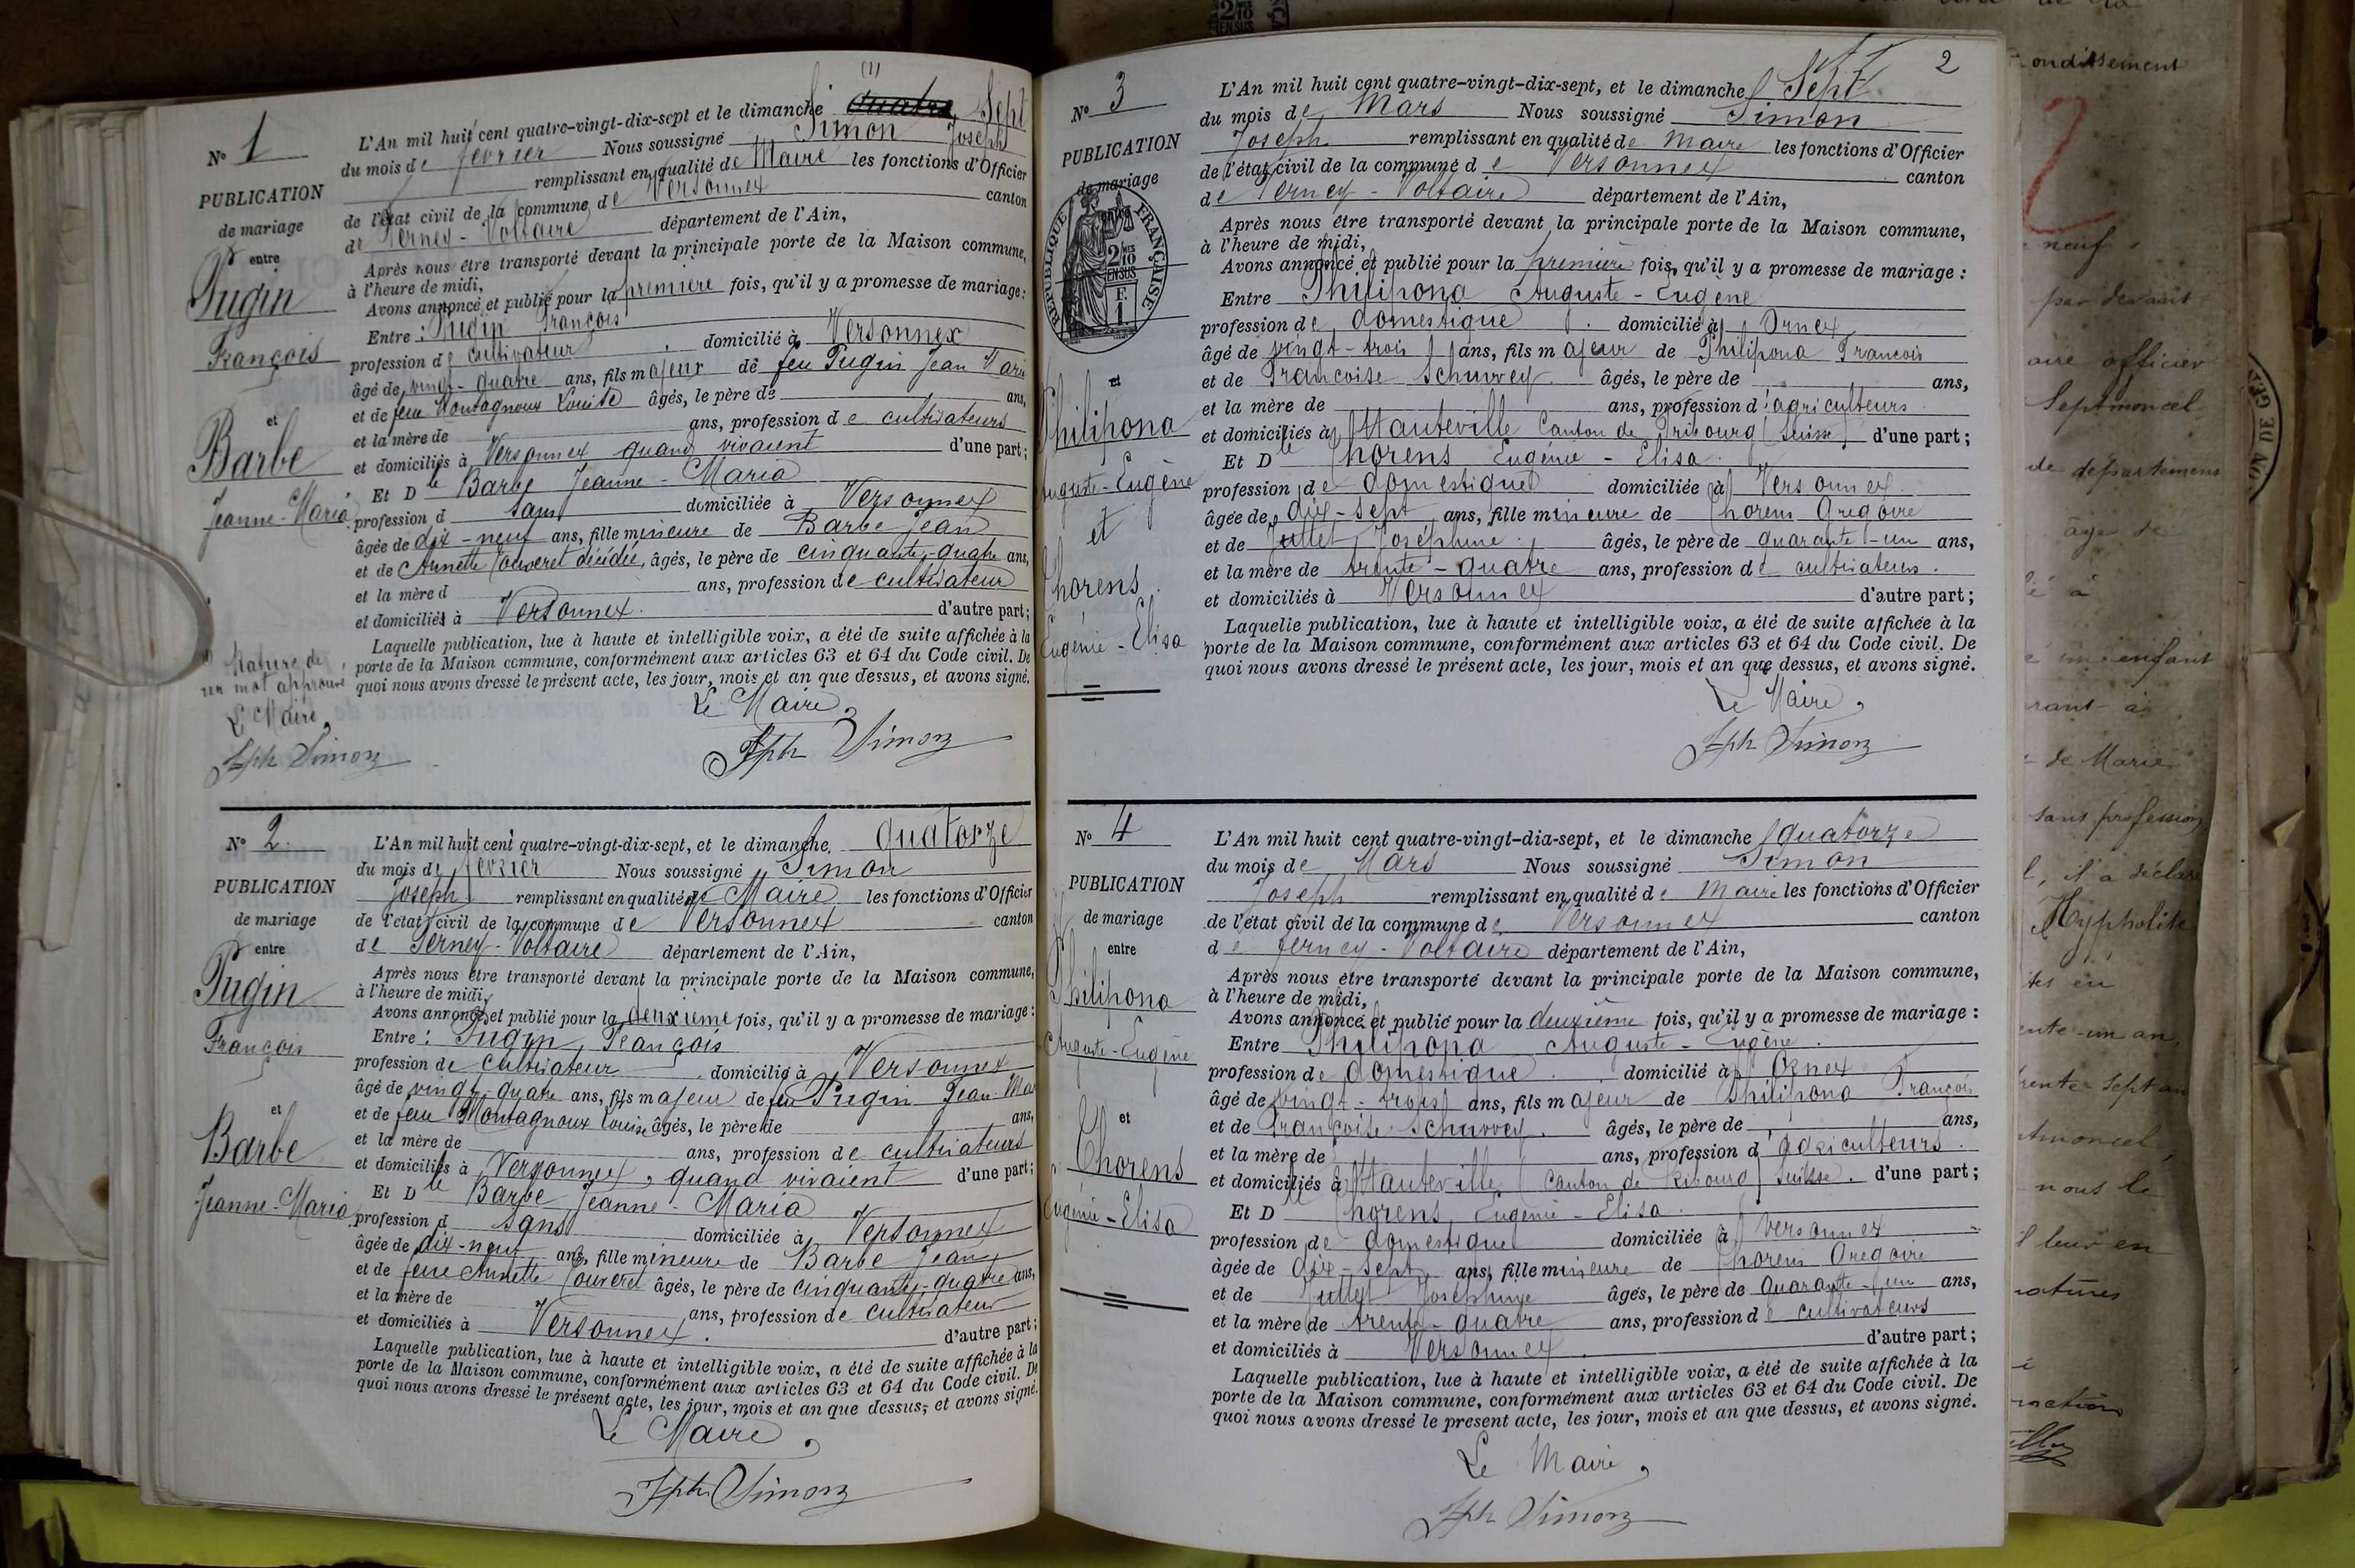 N° 1
PUBLICATION
de mariage
entre
Pugin
François
et
Barbe
Jeanne-Maria
(1)
L'An mil huit cent quatre-vingt-dix-sept et le dimanche quatre Sept
du mois de février Nous soussigné Simon Joseph
remplissant en qualité de Maire les fonctions d'Officier
de l'état civil de la commune de Versonnex canton
de Ferney-Voltaire département de l'Ain,
Après nous être transporté devant la principale porte de la Maison commune,
à l'heure de midi,
Avons annoncé et publié pour la première fois, qu'il y a promesse de mariage :
Entre : Pugin François
profession de cultivateur domicilié à Versonnex
âgé de vingt-quatre ans, fils majeur de feu Pugin Jean Marie
et de feue Montagnoux Louise âgés, le père de ans,
et la mère de ans, profession de cultivateurs
et domiciliés à Versonnex quand vivaient d'une part ;
Et Dlle Barbe Jeanne-Maria
profession d sans domiciliée à Versonnex
âgée de dix-neuf ans, fille mineure de Barbe Jean
et de Annette Couveret décédée, âgés, le père de cinquante-quatre ans,
et la mère d ans, profession de cultivateur
et domiciliés à Versonnex. d'autre part ;
Laquelle publication, lue à haute et intelligible voix, a été de suite affichée à la
porte de la Maison commune, conformément aux articles 63 et 64 du Code civil. De
quoi nous avons dressé le présent acte, les jour, mois et an que dessus, et avons signé.
Le Maire,
Jph Simon
Rature de
un mot approuvé
Le Maire,
Jph Simon
N° 2.
PUBLICATION
de mariage
entre
Pugin
François
et
Barbe
Jeanne-Maria
L'An mil huit cent quatre-vingt-dix-sept, et le dimanche, quatorze
du mois de février Nous soussigné Simon
Joseph remplissant en qualité de Maire les fonctions d'Officier
de l'état civil de la commune de Versonnex canton
de Ferney-Voltaire département de l'Ain,
Après nous être transporté devant la principale porte de la Maison commune,
à l'heure de midi,
Avons annoncé et publié pour la deuxième fois, qu'il y a promesse de mariage :
Entre : Pugin François
profession de cultivateur domicilié à Versonnex
âgé de vingt-quatre ans, fils majeur de feu Pugin Jean-Mar
et de feue Montagnoux Louise âgés, le père de ans,
et la mère de ans, profession de cultivateurs
et domiciliés à Versonnex, quand vivaient d'une part ;
Et Dlle Barbe Jeanne-Maria
profession d sans domiciliée à Versonnex
âgée de dix-neuf ans, fille mineure de Barbe Jean
et de feue Annette Couveret âgés, le père de cinquante-quatre ans,
et la mère de ans, profession de cultivateur
et domiciliés à Versonnex. d'autre part ;
Laquelle publication, lue à haute et intelligible voix, a été de suite affichée à la
porte de la Maison commune, conformément aux articles 63 et 64 du Code civil. De
quoi nous avons dressé le présent acte, les jour, mois et an que dessus, et avons signé.
Le Maire,
Jph Simon
2
N° 3
PUBLICATION
de mariage
entre
RÉPUBLIQUE FRANÇAISE
2/10
EN SUS
F.
1.
et
Philipona
Auguste-Eugène
et
Chorens
Eugénie-Elisa
L'An mil huit cent quatre-vingt-dix-sept, et le dimanche Sept
du mois de Mars Nous soussigné Simon
Joseph remplissant en qualité de Maire les fonctions d'Officier
de l'état civil de la commune de Versonnex canton
de Ferney-Voltaire département de l'Ain,
Après nous être transporté devant la principale porte de la Maison commune,
à l'heure de midi,
Avons annoncé et publié pour la première fois, qu'il y a promesse de mariage :
Entre Philipona Auguste-Eugène
profession de domestique domicilié à Ornex
âgé de vingt-trois ans, fils majeur de Philipona François
et de Françoise Schuwey âgés, le père de ans,
et la mère de ans, profession d'agriculteurs
et domiciliés à Hauteville Canton de Fribourg (Suisse) d'une part ;
Et Dlle Chorens Eugénie-Elisa.
profession de domestique domiciliée à Versonnex.
âgée de dix-sept ans, fille mineure de Chorens Gregoire
et de Juttet Joséphine. âgés, le père de quarante-un ans,
et la mère de trente-quatre ans, profession de cultivateurs.
et domiciliés à Versonnex d'autre part ;
Laquelle publication, lue à haute et intelligible voix, a été de suite affichée à la
porte de la Maison commune, conformément aux articles 63 et 64 du Code civil. De
quoi nous avons dressé le présent acte, les jour, mois et an que dessus, et avons signé.
Le Maire,
Jph Simon
N° 4
PUBLICATION
de mariage
entre
Philipona
Auguste-Eugène
et
Chorens
Eugénie-Elisa
L'An mil huit cent quatre-vingt-dia-sept, et le dimanche quatorze
du mois de Mars Nous soussigné Simon
Joseph remplissant en qualité de Maire les fonctions d'Officier
de l'état civil de la commune de Versonnex canton
de Ferney-Voltaire département de l'Ain,
Après nous être transporté devant la principale porte de la Maison commune,
à l'heure de midi,
Avons annoncé et publié pour la deuxième fois, qu'il y a promesse de mariage :
Entre Philipona Auguste-Eugène.
profession de domestique. domicilié à Ornex
âgé de vingt-trois ans, fils majeur de Philipona François
et de Françoise Schuwey. âgés, le père de ans,
et la mère de ans, profession d'agriculteurs.
et domiciliés à Hauteville (Canton de Fribourg) Suisse. d'une part ;
Et Dlle Chorens Eugénie-Elisa.
profession de domestique domiciliée à Versonnex
âgée de dix-sept ans, fille mineure de Chorens Gregoire
et de Juttet Joséphine âgés, le père de Quarante-un ans,
et la mère de trente-quatre ans, profession de cultivateurs
et domiciliés à Versonnex. d'autre part ;
Laquelle publication, lue à haute et intelligible voix, a été de suite affichée à la
porte de la Maison commune, conformément aux articles 63 et 64 du Code civil. De
quoi nous avons dressé le present acte, les jour, mois et an que dessus, et avons signé.
Le Maire,
Jph Simon
ondissement
2
neuf
par devant
aire officier
Septmoncel
de département
âge de
un enfant
rant à
de Marie
sans profession
l, il a déclaré
Hyppolite
nous le
leur en
natures